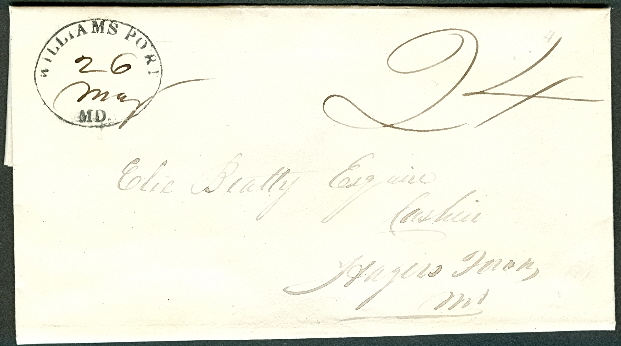 WILLIAMS PORT
26
May
MD.
24
Elie Beatty Esquire
Cashier
Hagers Town,
Md